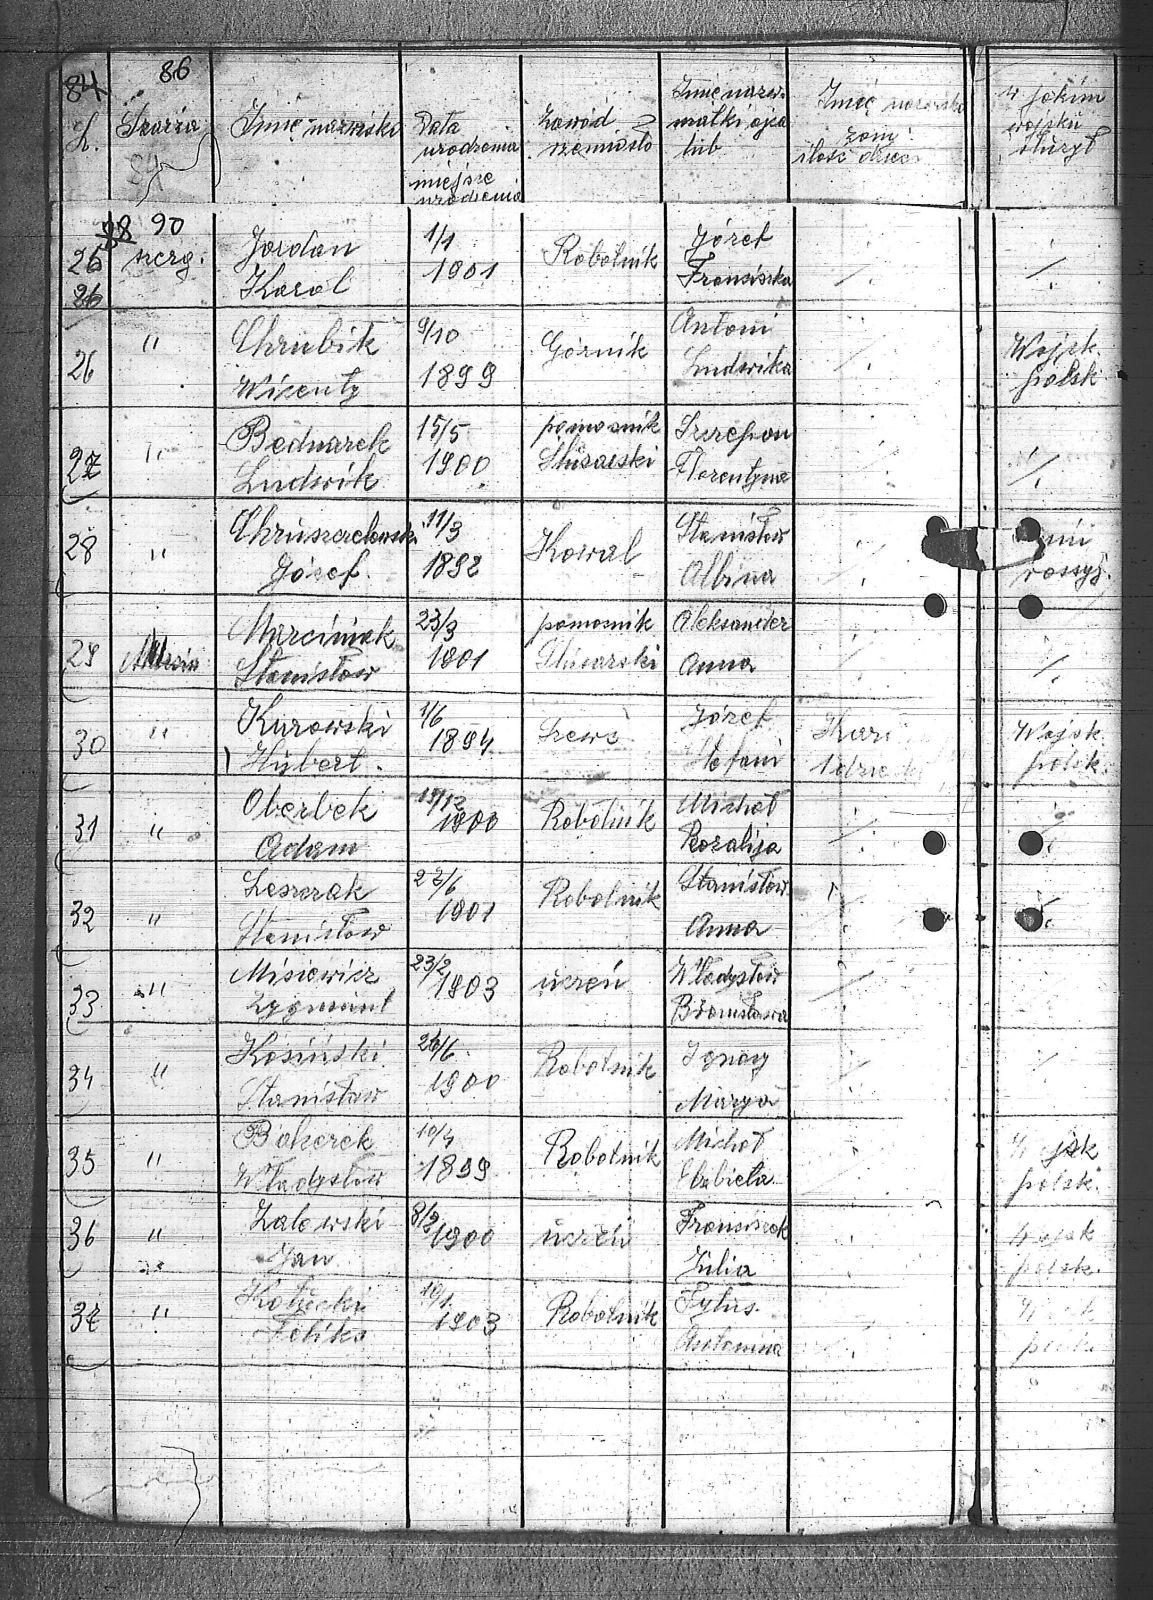 84 86
L. Szarża Imię nazwisko Data urodzenia miejsce urodzenia Zawód rzemiosło Imię nazw. matki ojca lub Imię nazwisko żony ilość dzieci w jakim wojsku służył
90
25 szereg. Jordan 1/1 Robotnik Józef
26 Karol 1901 Franciszka
26 " Chrubik 9/10 Górnik Antoni Wojsk.
Wicenty 1899 Ludwika polsk
27 " Bednarek 15/5 pomocnik Szczepan
Ludwik 1900 Ślusarski Florentyna
28 " Chruszczelewski 11/3 Kowal Stanisław
Józef. 1892 Albina rossyj.
29 Marciniak 23/3 pomocnik Aleksander
Stanisław 1901 Ślusarski Anna
30 " Kurowski 1/6 Szewc Józef Wojsk
Hubert. 1894 Stefani polsk.
31 " Oberbek 15/12 Robotnik Michał
Adam 1900 Rozalija
32 " Leszczak 22/6 Robotnik Stanisław.
Stanisław 1901 Anna
33 " Misiewicz 23/2 uczeń Władysław
Zygmunt 1903 Bronisława
34 " Kosiński 26/6 Robotnik Ignacy
Stanisław 1900 Marya
35 " Bokerek 10/4 Robotnik Michał
Władysław 1899 Elzbieta polsk.
36 " Zalewski 8/2 uczeń Franciszek
Jan 1900 Julia polsk.
37 " 10/1 Robotnik Tytus.
Feliks 1903 Antonina